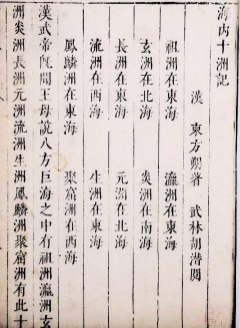 海內十洲記
漢 東方朔著 武林胡潛閱
祖洲在東海 瀛洲在東海
玄洲在北海 炎洲在南海
長洲在東海 元洲在北海
流洲在西海 生洲在東海
鳳麟洲在東海 聚窟洲在西海
漢武帝旣聞王母說八方巨海之中有祖洲瀛洲玄
洲炎洲長洲元洲流洲生洲鳳麟洲聚窟洲有此十